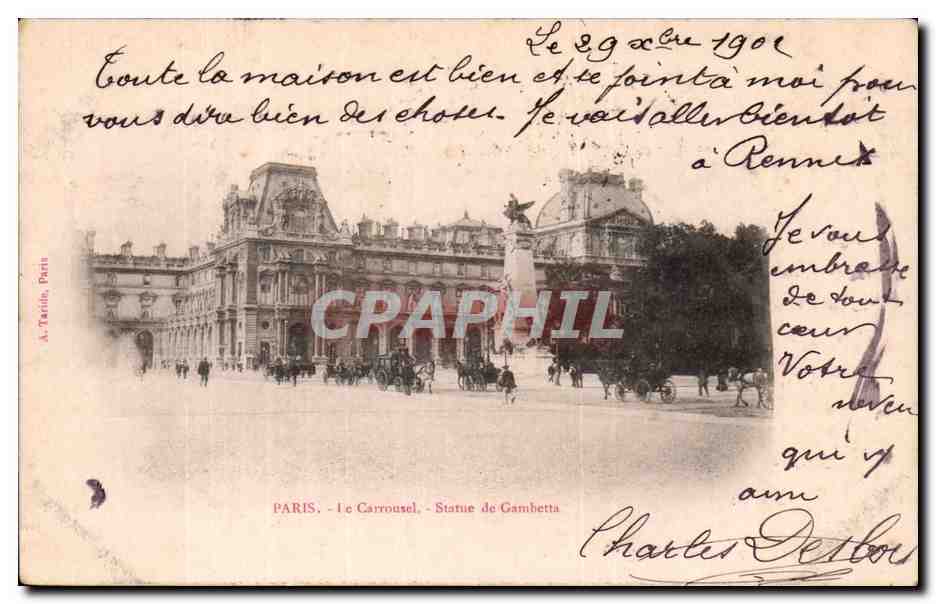 Le 29 Xbre 1901
Toute la maison est bien et se joint à moi pour
vous dire bien des choses. Je vais aller bientot
à Rennes
Je vous
embrasse
de tout
coeur
Votre
neveu
qui v
aim
Charles Desbois
A. Taride, Paris
CPARAMA
PHIL
PARIS. - Le Carrousel. - Statue de Gambetta